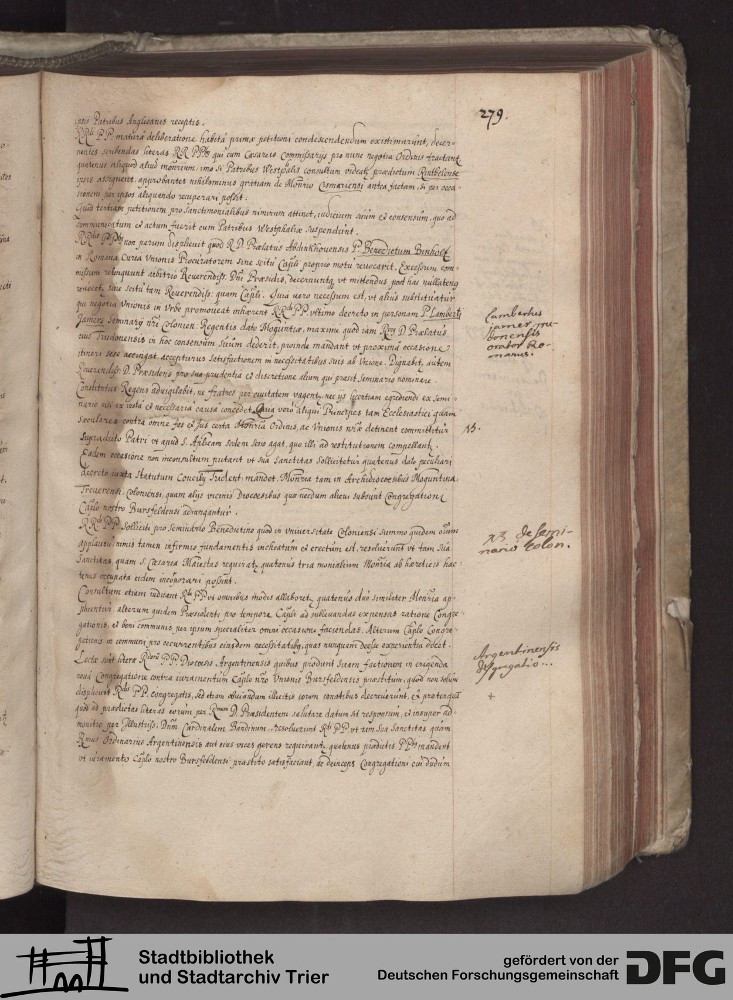 279.
ipsis Patribus Anglicanis receptis.
RRdi PP. maturâ deliberatione habitâ primæ petitioni condescendendum existimarunt, decer-
nentes scribendas literas RR. PPbus qui cum Cæsareis Commissarijs pro nunc negotia Ordinis tractant,
quatenus aliquod aliud monrium, imo si Patribus Westphalis consultum videatur prædictum Rintbelense
ipsis assignent, approbantes nihilominus gratiam de Monrio Cismariensi antea factam, si per occa-
sionem per ipsos aliquando recuperari possit.
Quod tertiam petitionem pro Sanctimonialibus nimirum attinet, iudicium suum et consensum, quo ad
communicatum et actum fuerit cum Patribus Westphaliæ suspendunt.
RRdis PPbus non parum displicuit quod R.D. Prælatus Abdinkhovensis P. Benedictum Bonholt
in Romana Curia Unionis Procuratorem sine scitu Capli proprio motu revocarit. Excessum com-
missum relinquunt arbitrio Reverendiss. Dni Præsidis, decernuntque ut mittendus post hac nullatenus
revocetur, sine scitu tam Reverendiss: quam Capli. Quia vero necessum est, ut alius substituatur
qui negotia Unionis in Urbe promoveat inhærent RRdi PP. ultimo decreto in personam P. Lamberti
Jamers Seminarij nri Colonien. Regentis dato Moguntiæ, maxime quod iam Rmus D. Prælatus
eius Trudonensis in hoc consensum suum dederit, proinde mandant ut proximâ occasione
itineri sese accingat accepturus satisfactionem in necessitatibus suis ab Unione. Dignabitur autem
Reverendiss: D. Præsidens pro sua prudentia et discretione alium qui præsit Seminario nominare.
Constitutus Regens advigilabit, ne fratres per civitatem vagentur, nec ijs licentiam egrediendi ex semi-
nario nisi ex iusta et necessaria causa concedet. Quia vero aliqui Principes tam Ecclesiastici quam
sæculares contra omne fas et Jus certa Monria Ordinis, ac Unionis nræ detinent committetur
supradicto Patri ut apud S. Aplicam sedem serio agat, quo illi ad restitutionem compellantur.
Eadem occasione non inconsultum putaret ut sua Sanctitas sollicitetur quatenus dato peculiari
decreto iuxta Statutum Concilij Trident. mandet. Monria tam in Archidioecesibus Moguntina
Treverensi, Coloniensi, quam alijs vicinis Dioecesibus quæ necdum alicui subsunt Congregationi,
Caplo nostro Bursfeldensi adiungantur.
RRdi PP. solliciti pro Seminario Benedictino quod in Universitate Coloniensi summo quidem omnium
applausu, nimis tamen infirmo fundamento inchoatum et erectum est, resolverunt ut tam sua
Sanctitas quam S. Cæsarea Maiestas requiratur, quatenus tria monialium Monria ab hæreticis hac
tenus occupata eidem incorporari possint.
Consultum etiam iudicant Rdi PP. ut omnibus modis allaboretur, quatenus duo similiter Monria ap-
plicentur; alterum quidem Præsidenti pro tempore Capli ad sublevandas expensas ratione Congre-
gationis, et boni communis per ipsum specialiter omni occasione faciendas. Alterum Caplo Congre-
gationis in communi pro occurrentibus eiusdem necessitatibus, quas nunquam deesse experientia docet.
Lectæ sunt literæ Rdorum PP. Dioecesis Argentinensis quibus produnt suam factionem in erigenda
nova Congregatione contra iuramentum Caplo nro Unionis Bursfeldensis præstitum, quod non solum
displicuit Rdis PP. congregatis, sed etiam obviandum illicitis eorum conatibus decreverunt, ex protenque
quod ad prædictas literas eorum per Rmum D. Præsidentem salutare datum sit responsum, et insuper ad-
monitio per Illustriss. Dnm Cardinalem Bandinum, resolverunt Rdi PP. ut tam sua Sanctitas quam
Rmus Ordinarius Argentinensis aut eius vices gerens requirantur, quatenus prædictis PPbus mandent
ut iuramento Caplo nostro Bursfeldensi præstito satisfaciant, ac deinceps Congregationi cui dudum
Lambertus
Jamer tru-
donensis
orator Ro-
manus.
NB.
NB de semi-
nario Colon.
Argentinensis
segregatio...
+
Stadtbibliothek
und Stadtarchiv Trier
gefördert von der
Deutschen Forschungsgemeinschaft
DFG